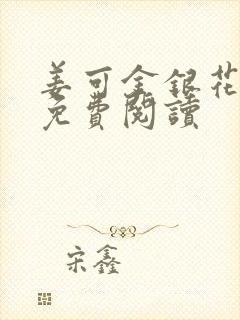 姜可金銀花
免費閱讀
宋鑫